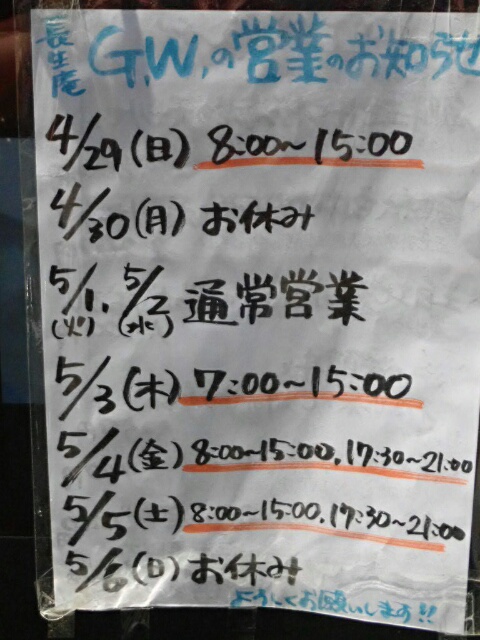 長生庵
G.W.の営業のお知らせ
4/29(日) 8:00〜15:00
4/30(月) お休み
5/1(火), 5/2(水) 通常営業
5/3(木) 7:00〜15:00
5/4(金) 8:00〜15:00, 17:30〜21:00
5/5(土) 8:00〜15:00, 17:30〜21:00
5/6(日) お休み
よろしくお願いします!!